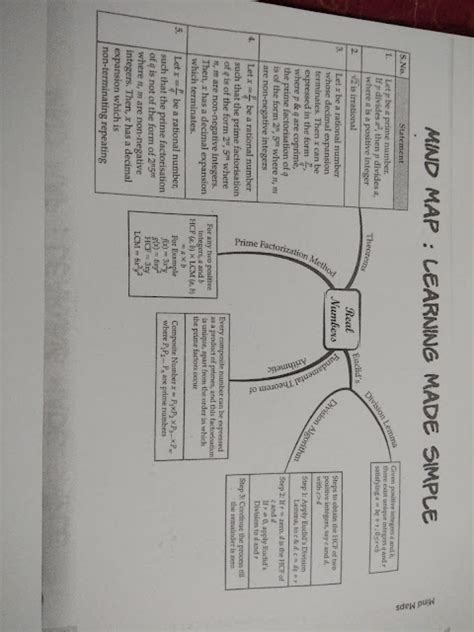 Mind Maps
MIND MAP : LEARNING MADE SIMPLE
S.No.
Statement
1.
Let p be a prime number.
If p divides a², then p divides a,
where a is a positive integer
2.
√2 is irrational
3.
Let x be a rational number
whose decimal expansion
terminates. Then x can be
expressed in the form p/q,
where p & q are coprime,
the prime factorisation of q
is of the form 2ⁿ, 5ᵐ where n, m
are non-negative integers
4.
Let x = p/q be a rational number
such that the prime factorisation
of q is of the form 2ⁿ, 5ᵐ where
n, m are non-negative integers.
Then, x has a decimal expansion
which terminates.
5.
Let x = p/q be a rational number,
such that the prime factorisation
of q is not of the form of 2ⁿ5ᵐ
where n, m are non-negative
integers. Then, x has a decimal
expansion which is
non-terminating repeating
Theorems
Real
Numbers
Prime Factorization Method
For any two positive
integers, a and b
HCF (a, b) × LCM (a, b)
= a × b
For Example
f(x) = 3x²y
g(x) = 6xy²
HCF = 3xy
LCM = 6x²y²
Fundamental Theorem of
Arithmetic
Every composite number can be expressed
as a product of primes, and this factorisation
is unique, apart from the order in which
the prime factors occur
Composite Number x = P₁×P₂×P₃...×Pₙ,
where P₁P₂... Pₙ are prime numbers
Euclid's
Division Lemma
Given positive integers a and b,
there exist unique integers q and r
satisfying a = bq + r; 0≤r<b
Division Algorithm
Steps to obtain the HCF of two
positive integers, say c and d,
with c>d
Step 1: Apply Euclid's Division
Lemma, to c & d. c = dq + r
Step 2: If r = zero, d is the HCF of
c and d
If r ≠ 0, apply Euclid's
Division to d and r
Step 3: Continue the process till
the remainder is zero